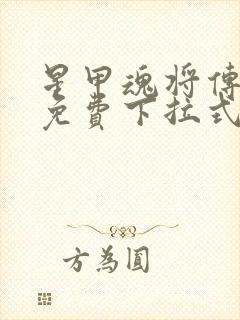 星甲魂将傳
免費下拉式
方為圓